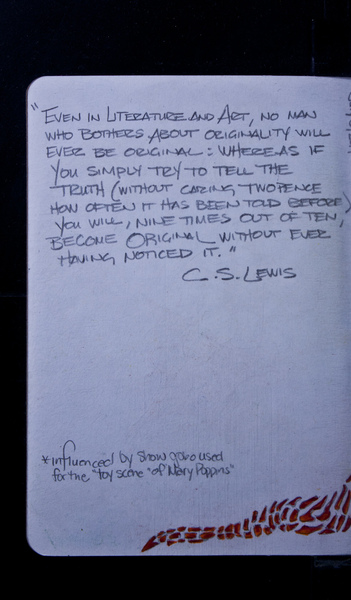 "EVEN IN LITERATURE AND ART, NO MAN
WHO BOTHERS ABOUT ORIGINALITY WILL
EVER BE ORIGINAL: WHEREAS IF
YOU SIMPLY TRY TO TELL THE
TRUTH (WITHOUT CARING TWOPENCE
HOW OFTEN IT HAS BEEN TOLD BEFORE)
YOU WILL, NINE TIMES OUT OF TEN,
BECOME ORIGINAL WITHOUT EVER
HAVING NOTICED IT."
C.S. LEWIS
*influenced by show used
for the "toy scene" of Mary Poppins"